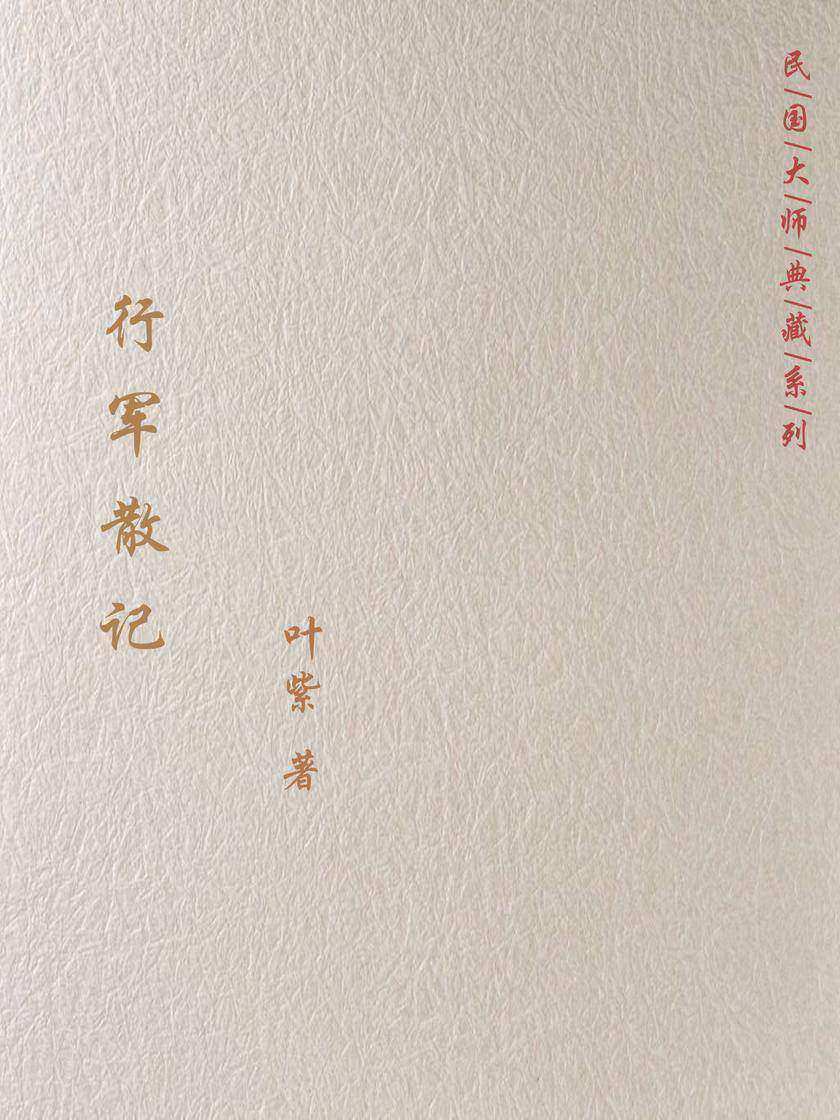 民/国/大/师/典/藏/系/列
行军散记
叶紫 著